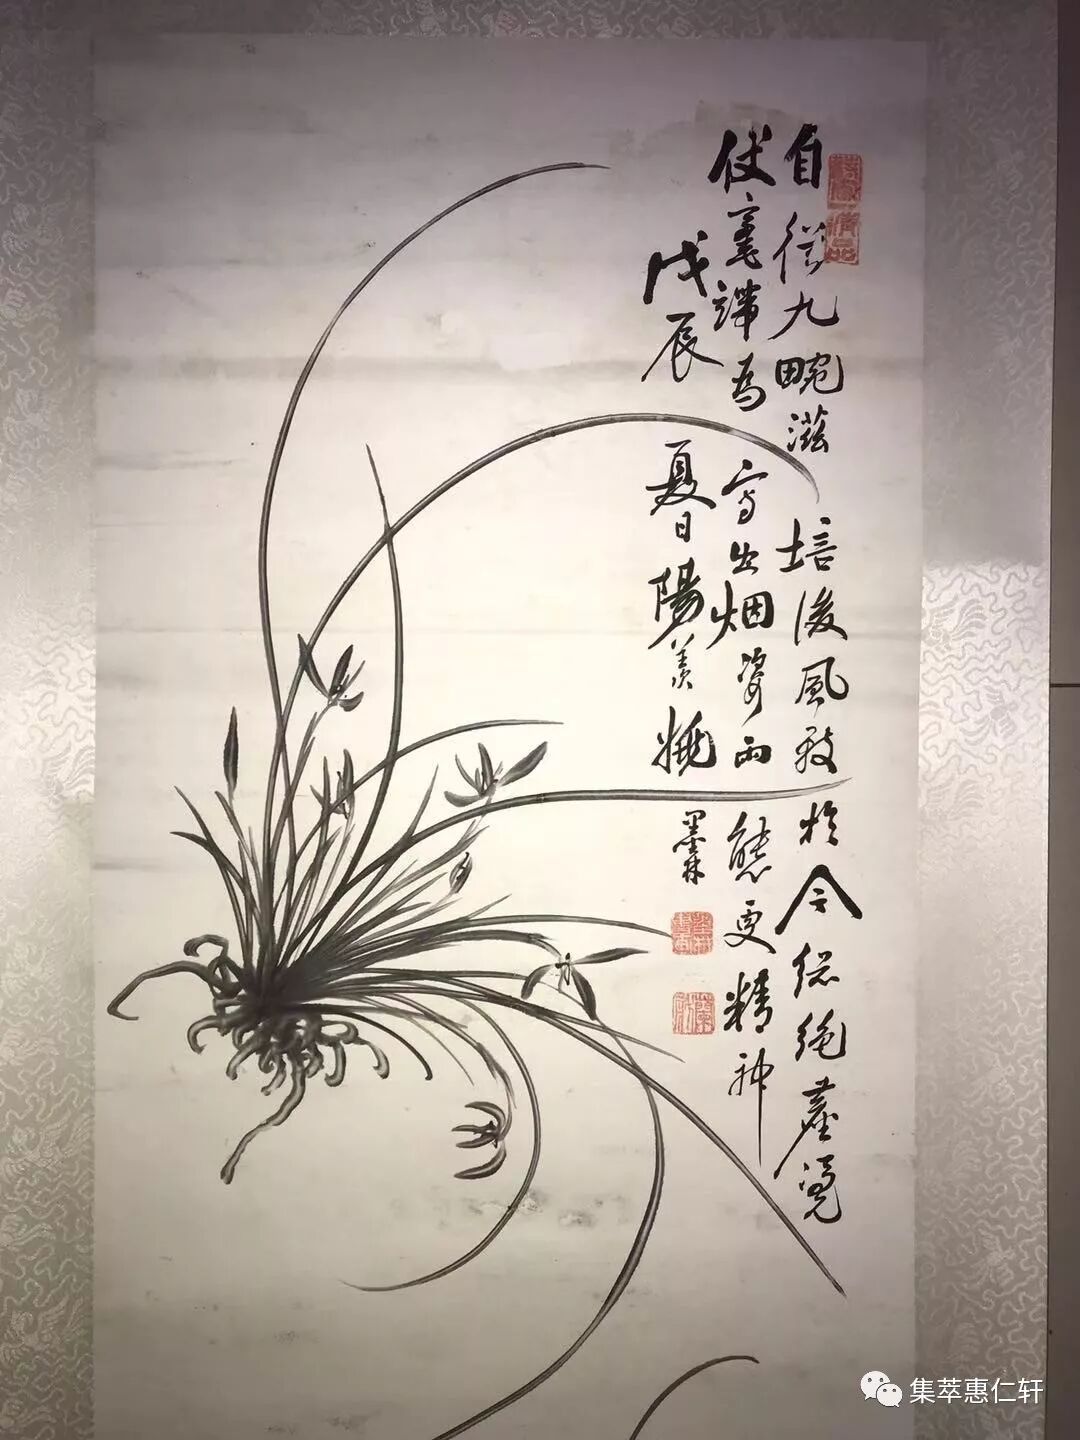 自從九畹滋培後風致於今總絕塵凴
仗毫端為寫出烟姿雨態更精神
戊辰夏日陽羨姚墨林
集萃惠仁轩